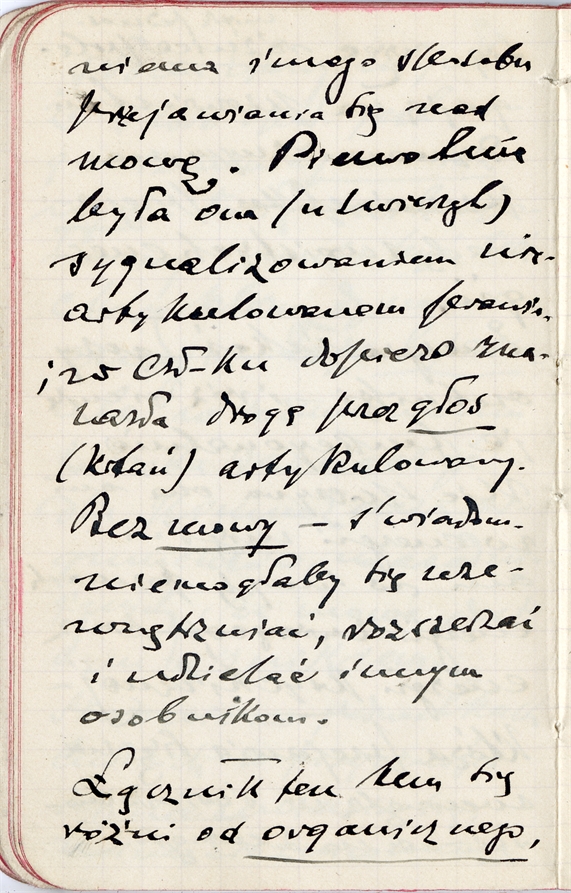 niema innego sposobu
przejawiania się nad
mowę. Pierwotnie
była ona (u zwierząt)
sygnalizowaniem nie-
artykułowanem
i w czł-ku dopiero zna-
lazła drogę przez głos
(krtań) artykułowany.
Bez mowy – świadom.
niemogłaby się uze-
wnętrzniać, rozszerzać
i udzielać innym
osobnikom.
Łącznik ten tem się
różni od organicznego,